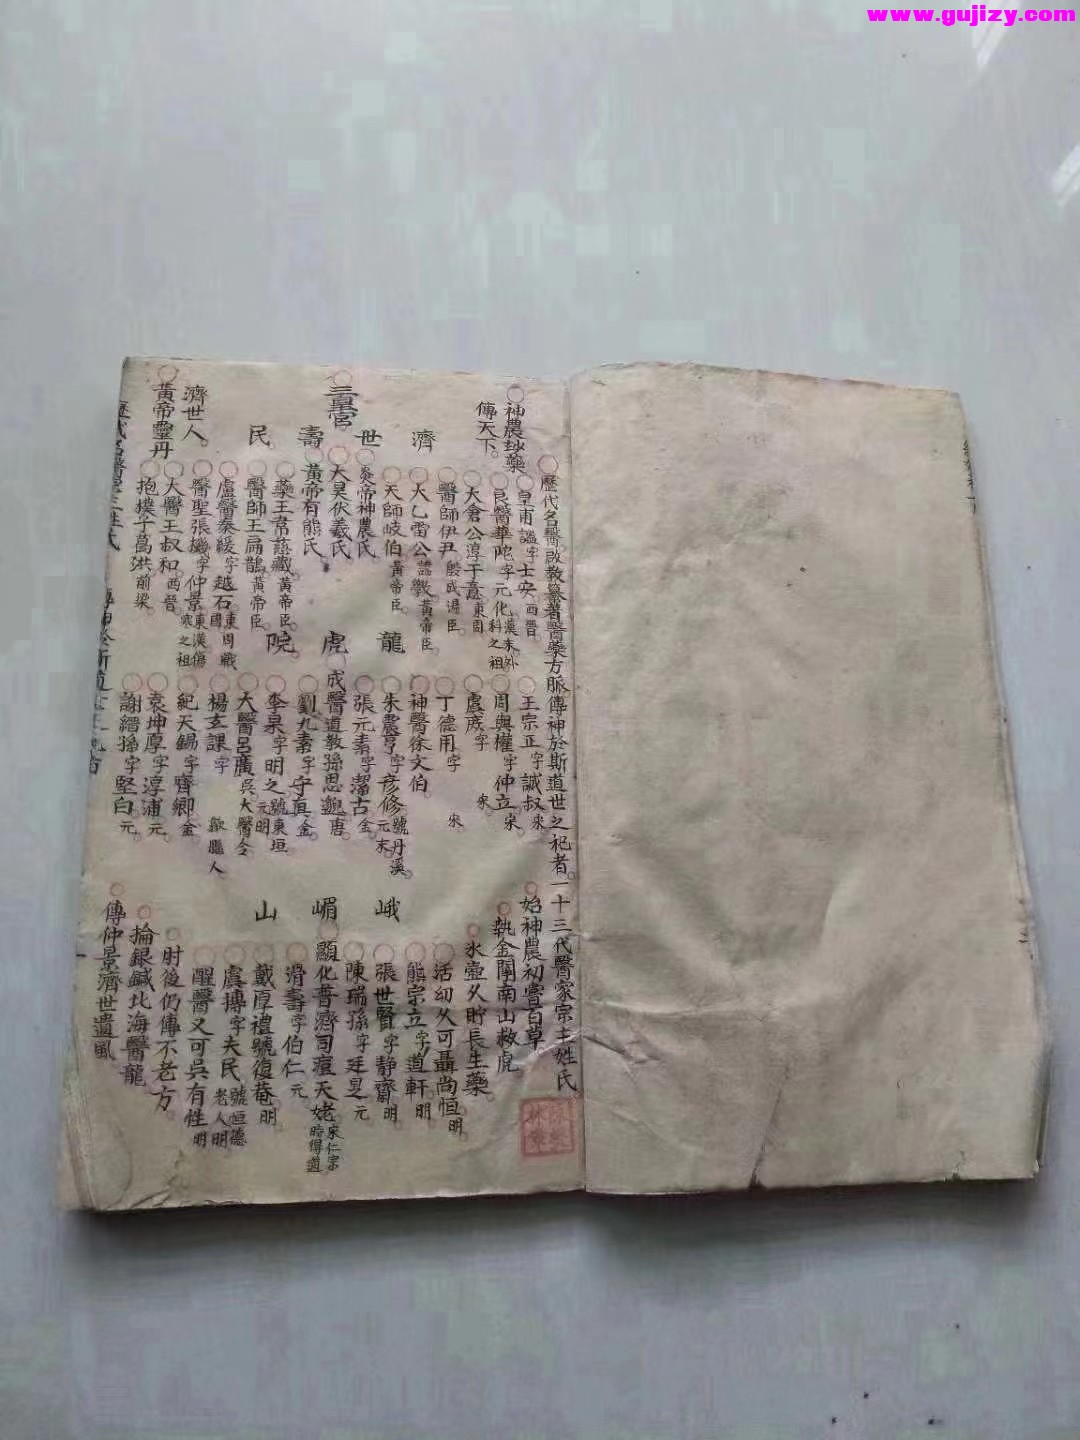 www.gujizy.com
歷代名醫啟教纂著醫藥方脈傳神於斯道世之祀者一十三代醫家宗主姓氏
神農玅藥
傳天下
濟世壽民
三皇宮
濟世人
黃帝靈丹
皇甫謐字士安西晉
良醫華陀字元化漢末外科之祖
大倉公淳于意東周
醫師伊尹殷成湯臣
大乙雷公黃帝臣
天師岐伯黃帝臣
炎帝神農氏
大昊伏羲氏
黃帝有熊氏
藥王韋慈藏黃帝臣
醫師王扁鵲黃帝臣
盧醫秦緩字越石東周戰國
醫聖張機字仲景東漢傷寒之祖
大醫王叔和西晉
抱樸子葛洪前梁
龍虎院
王宗正字誠叔宋
周與權字仲立宋
虞庶字 宋
丁德用字 宋
神醫徐文伯
朱震亨字彥修號丹溪元末
張元素字潔古金
成醫道教孫思邈唐
劉九素字守真金
李泉字明之號東垣元明
大醫呂廣吳大醫令
楊玄課字 歙縣人
紀天錫字齊卿金
袁坤厚字淳浦元
謝縉孫字堅白元
峨嵋山
始神農初嘗百草
執金闕南山救虎
氷壺久貯長生藥
活幼久可聶尚恒明
熊宗立字道軒明
張世賢字靜齋明
陳瑞孫字廷昰元
顯化普濟司痘天姥宋仁宗時得道
滑壽字伯仁元
戴厚禮號復菴明
虞摶字夫民號恒德老人明
醒醫又可吳有性明
肘後仍傳不老方
掄銀鍼北海醫龍
傳仲景濟世遺風